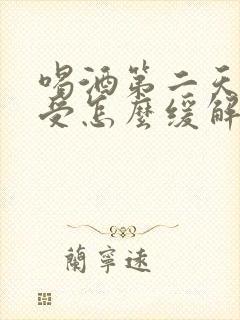 喝酒第二天
受怎麼緩解
蘭寧遠